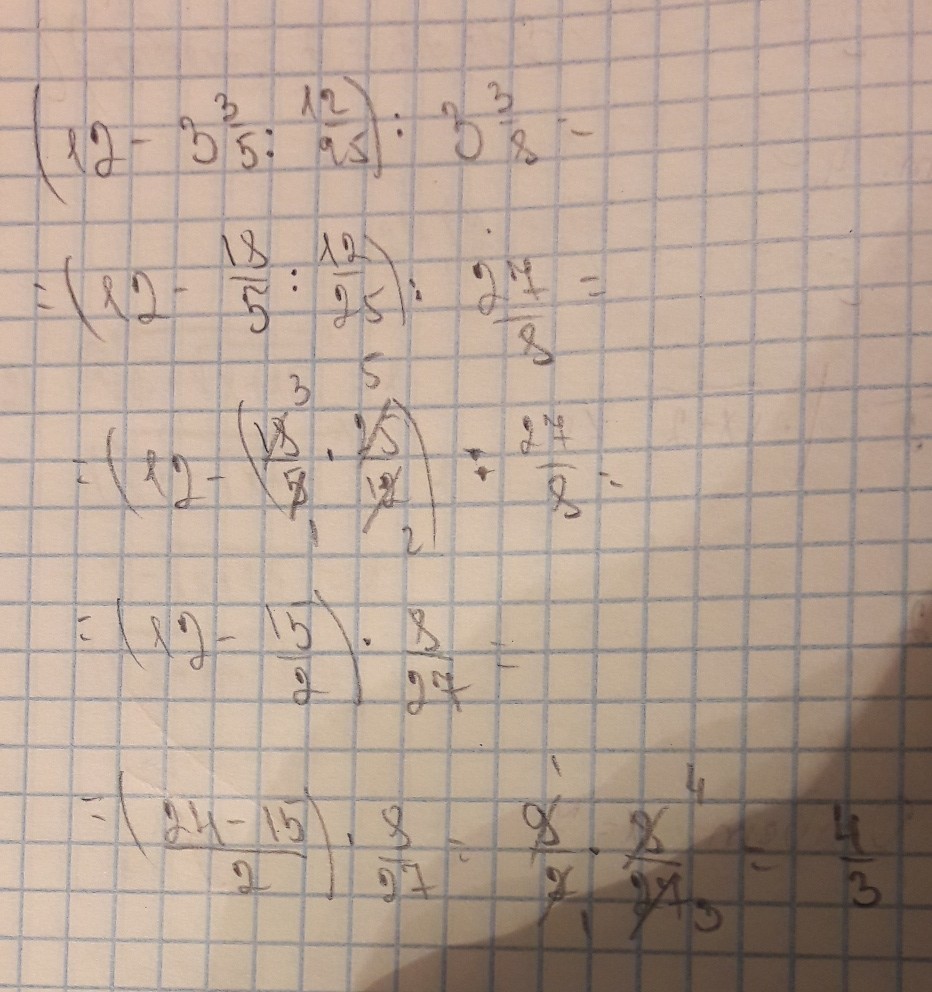 (12 - 3 3/5 : 12/25) : 3 3/8 =
= (12 - 18/5 : 12/25) : 27/8 =
= (12 - (18/5 · 25/12) : 27/8 =
= (12 - 15/2) · 8/27 =
= (24 - 15/2) · 8/27 = 9/2 · 8/27 = 4/3